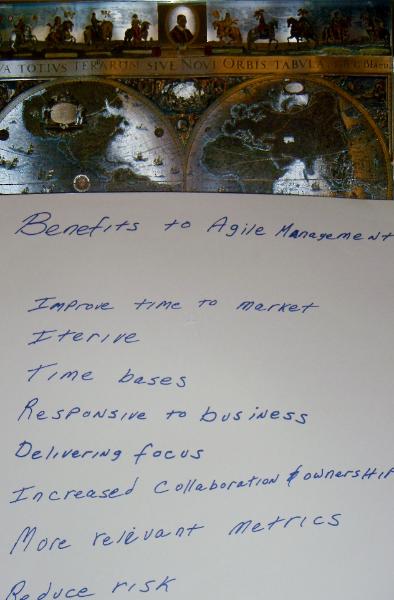 VA TOTIVS TERRARUM SIVE NOVI ORBIS TABVLA
Benefits to Agile Management
Improve time to market
Iterive
Time bases
Responsive to business
Delivering focus
Increased Collaboration & ownership
More relevant metrics
Reduce risk